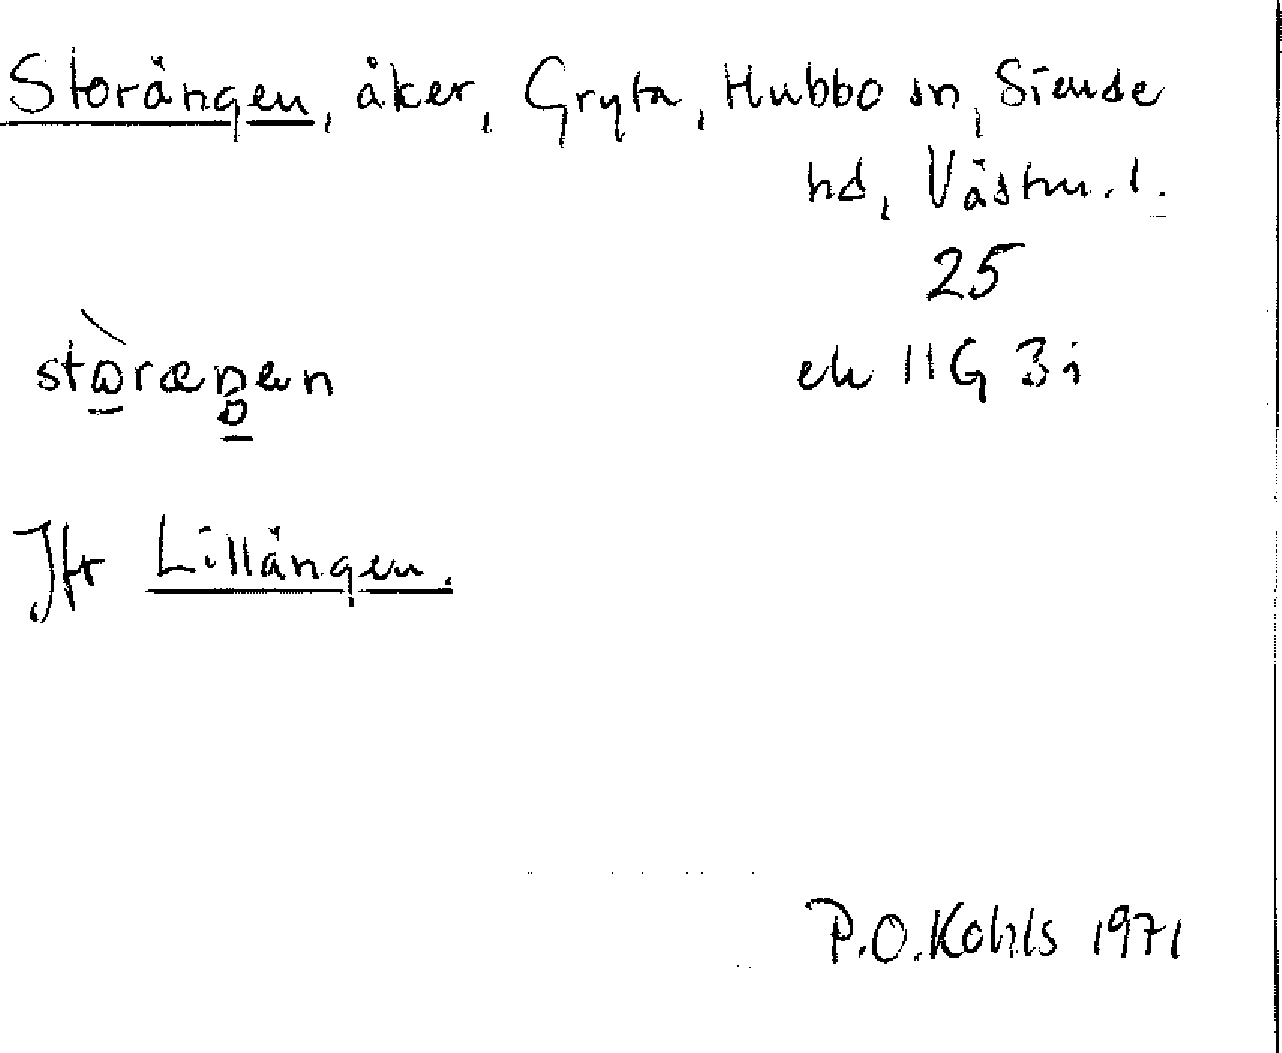 Storängen, åker, Gryta, Hubbo sn, Siende
hd, Västm. l.
25
ek 11G 3i
Jfr Lillängen.
P.O. Kohls 1971